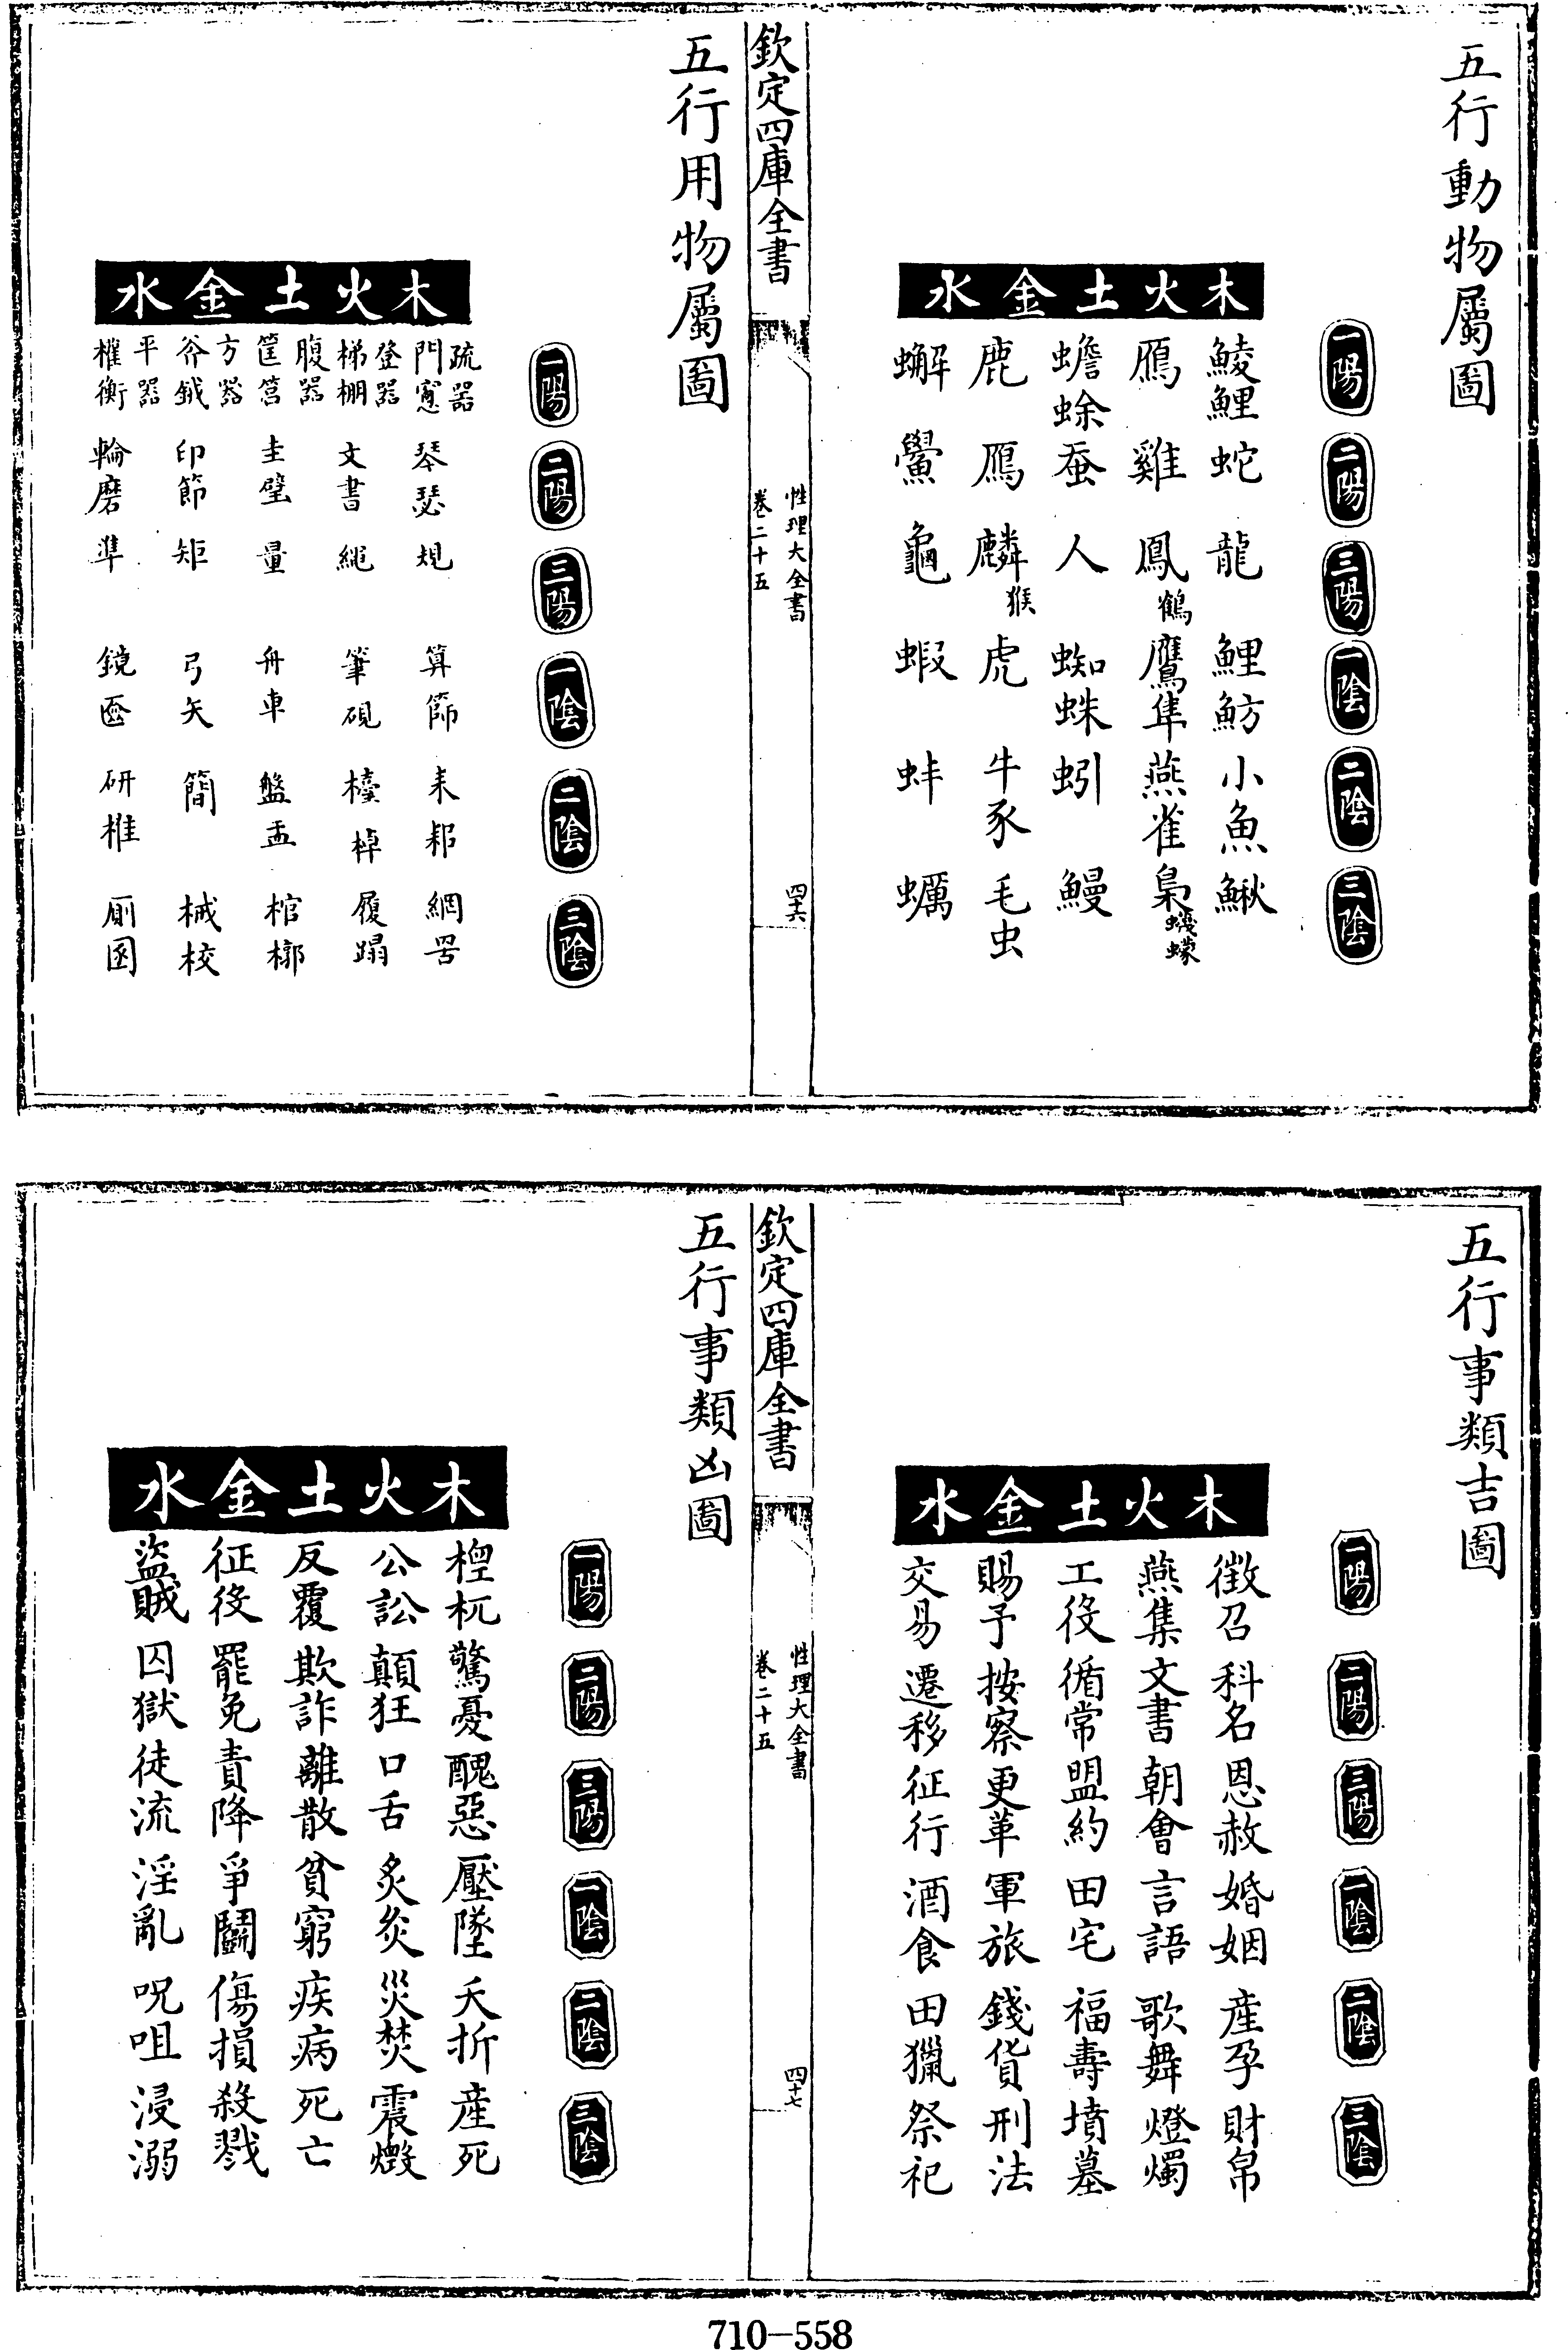 五行動物屬圖
一陽 二陽 三陽 一陰 二陰 三陰
木 鯪鯉 蛇 龍 鯉魴 小魚 鰍
火 鴈 雞 鳳 鶴 鷹隼 燕雀 梟 蠛蠓
土 蟾蜍 蚕 人 蜘蛛 蚓 鰻
金 鹿 鴈 麟 猴 虎 牛豕 毛虫
水 蠏 鱟 龜 蝦 蚌 蠣
欽定四庫全書
性理大全書
卷二十五
四十六
五行用物屬圖
一陽 二陽 三陽 一陰 二陰 三陰
木 疏器 門窻 琴瑟 規 算篩 耒耜 網罟
火 登器 梯棚 文書 繩 筆硯 檯棹 履蹋
土 腹器 筐筥 圭璧 量 舟車 盤盂 棺槨
金 方器 斧鉞 印節 矩 弓矢 簡 械校
水 平器 權衡 輪磨 準 鏡匳 研椎 厠圂
五行事類吉圖
一陽 二陽 三陽 一陰 二陰 三陰
木 徵召 科名 恩赦 婚姻 産孕 財帛
火 燕集 文書 朝會 言語 歌舞 燈燭
土 工役 循常 盟約 田宅 福壽 墳墓
金 賜予 按察 更革 軍旅 錢貨 刑法
水 交易 遷移 征行 酒食 田獵 祭祀
欽定四庫全書
性理大全書
卷二十五
四十七
五行事類凶圖
一陽 二陽 三陽 一陰 二陰 三陰
木 桯杌 驚憂 醜惡 壓墜 夭折 産死
火 公訟 顛狂 口舌 炙灸 災焚 震燬
土 反覆 欺詐 離散 貧窮 疾病 死亡
金 征役 罷免 責降 爭鬪 傷損 殺戮
水 盜賊 囚獄 徒流 淫亂 呪咀 浸溺
710-558